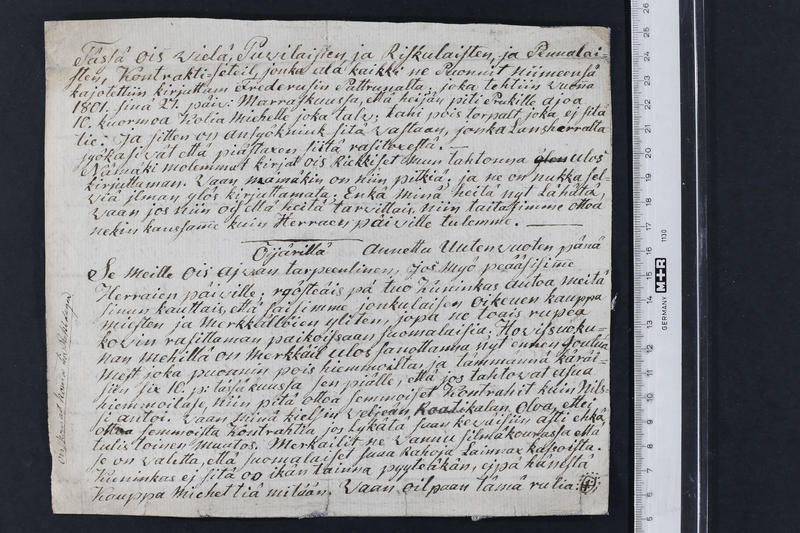 Tästä ois vielä, Puvilaisten, ja Riskulaisten, ja Punnalai-
sten, Kontrakti-seteit, jonka ala kaikki ne Puonnit nimeensä
kajotettiin kirjuttun Frederusin Pattrunalta, joka tehtiin vuona
1801. sinä 27. päiv: Marraskuussa, että heijän piti Prukille ajoa
10. kuormoa Kolia miehelle joka talv; tahi pois torpalt joka ej sitä
tie. Ja sitten on ansyöknink sitä vastaan, jonka Lansherralta
syökäsivät että piästäxen siitä rasitoxesta. —
Nämäki molemmat kirjat ois kiekkiset mun tahtonna ulos
kirjuttaman. Vaan mämäkin on niin pitkiä: ja ne on nukka sel-
viä ilman ylös kirjuttamata. Enkä minä, heitä nyt Lähätä,
vaan jos niin ois että heitä tarvittais, niin taitasimme ottoa
nekin kanssame kuin Herraen päiville tulemme. —
Öijärillä Annettu Uuten vuoten pänä
Se meille ois ajvan tarpeentinen, Jos myö peääsisime
Herraien päiville; roosteäis pä tuo Kuninkas autoa meitä
sinun kauttais, että saisimme jonkulaisen oikeuen kauppa
miesten ja Merkkältöien yliten, jopa ne toais rupea
kovin rasittaman paikoissaan suomalaisia. Hovissuoku-
nan mehillä on Merkkäil ulos sanottanna nyt ennen Joulua
mest joka puoanin pois hiemmoilta; ja tämmännä käräi-
sin six 10. p: tässä kuussa sen piälle, että jos tahtovat assua
hiemmoilase, niin pitä ottoa semmoiset Kontrahit kuin Nils-
si antoi. Vaan minä kielsin veljeän Kaalikalan Oloa, ettei
ottoa semmoista Kontrahtia jos Lykätä suan kevaisiin asti ehkä
tulis toinen muutos. Merkailit ne vannu silmäkourassa että
se on valetta, että suomalaiset suua Rahoja Lainnax kassoista.
Kuninkas ej sitä oo ikän tainna pyytetäkän, ejpä hänestä
Kauppa miehet tiä mitään. Vaan oilpaan tämä rulia: